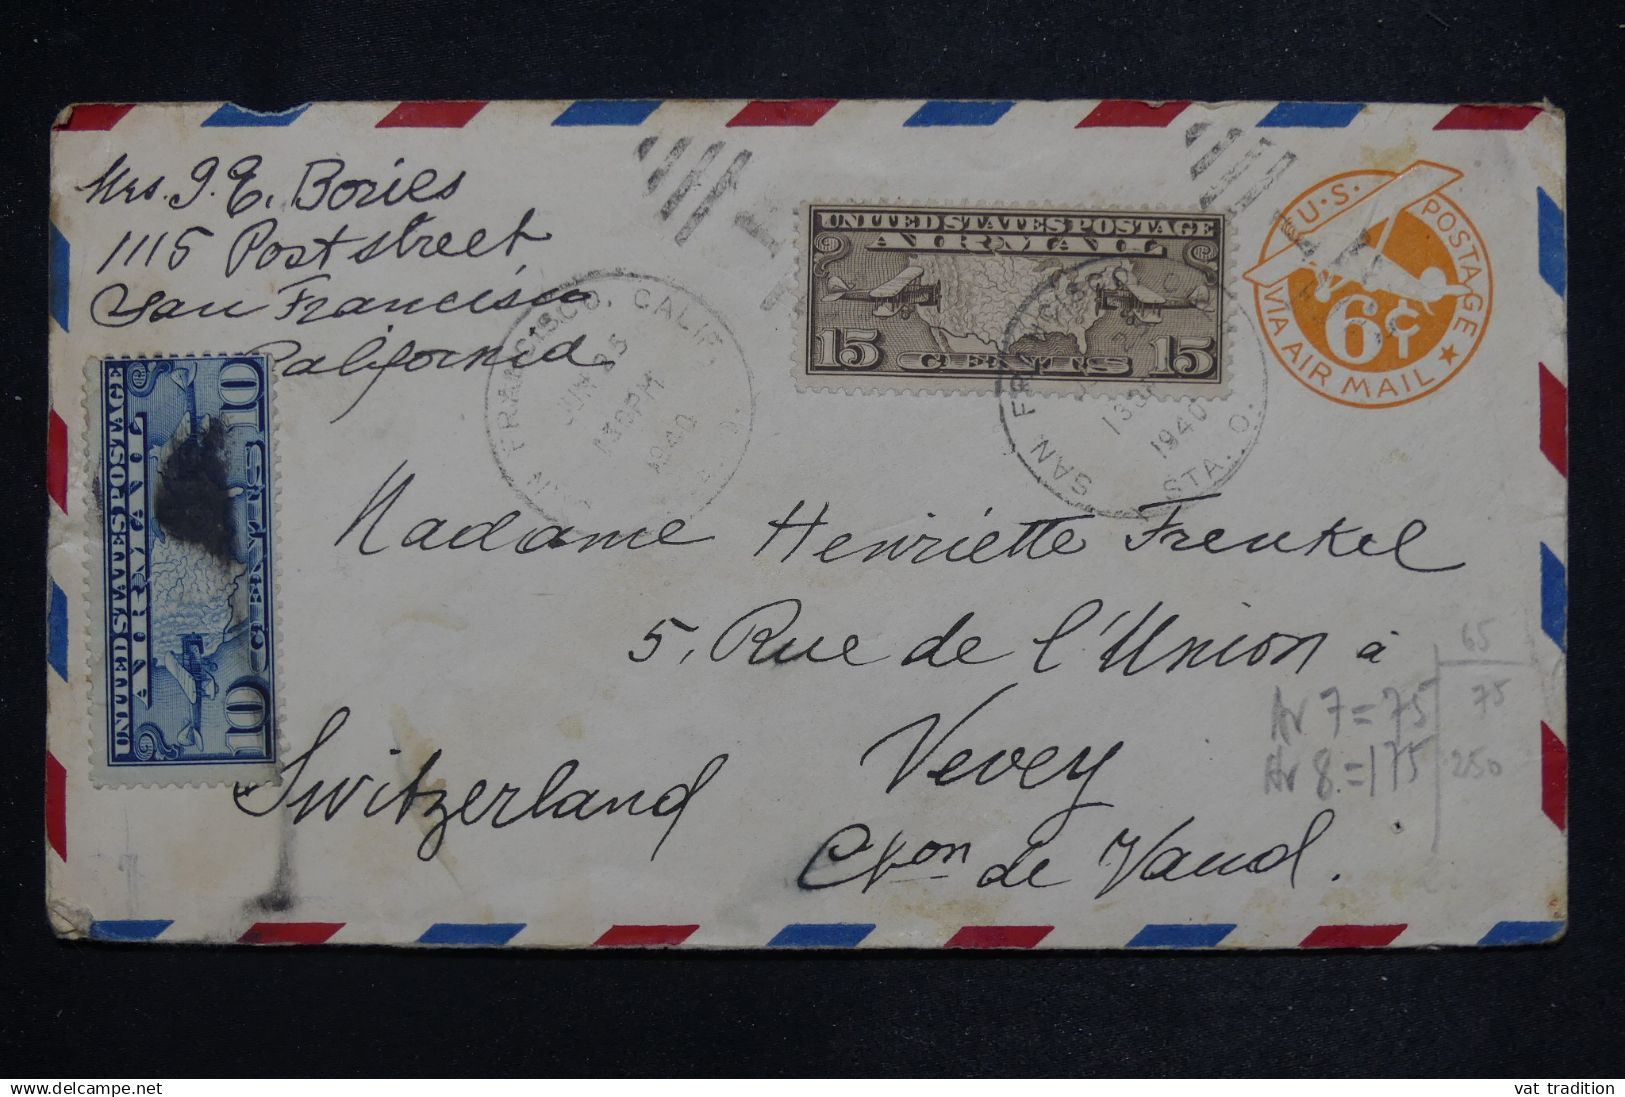 Mrs. J. E. Bories
1115 Post street
San Francisco
California
UNITED STATES POSTAGE
AIR MAIL
15 CENTS 15
U.S. POSTAGE
6¢
VIA AIR MAIL
UNITED STATES POSTAGE
AIR MAIL
10 CENTS 10
SAN FRANCISCO, CALIF.
JUN 25
130PM
1940
SAN FRANCISCO
130PM
1940
STA. O.
Madame Henriette Frenkel
5, Rue de l'Union à
Vevey
Switzerland
Cton de Vaud.
65
Av 7 = 75 75
Av 8 = 175 250
© delcampe.net
vat_tradition